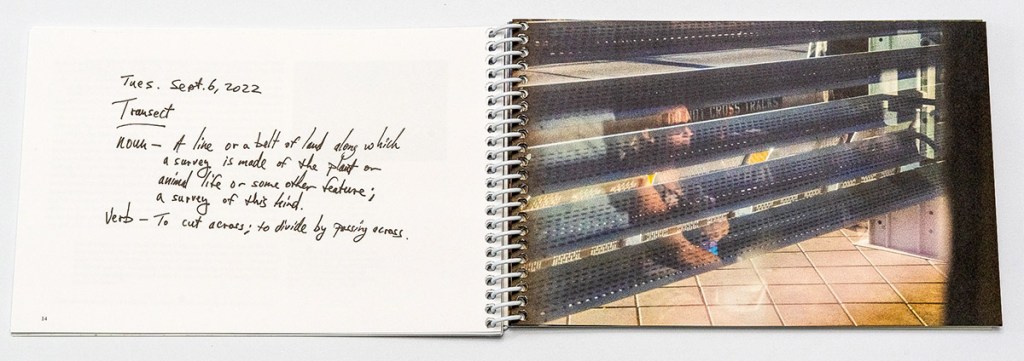 Tues. Sept. 6, 2022
Transect
noun – A line or a belt of land along which
a survey is made of the plant or
animal life or some other feature;
a survey of this kind.
verb – To cut across; to divide by passing across.
34
CROSS TRACKS